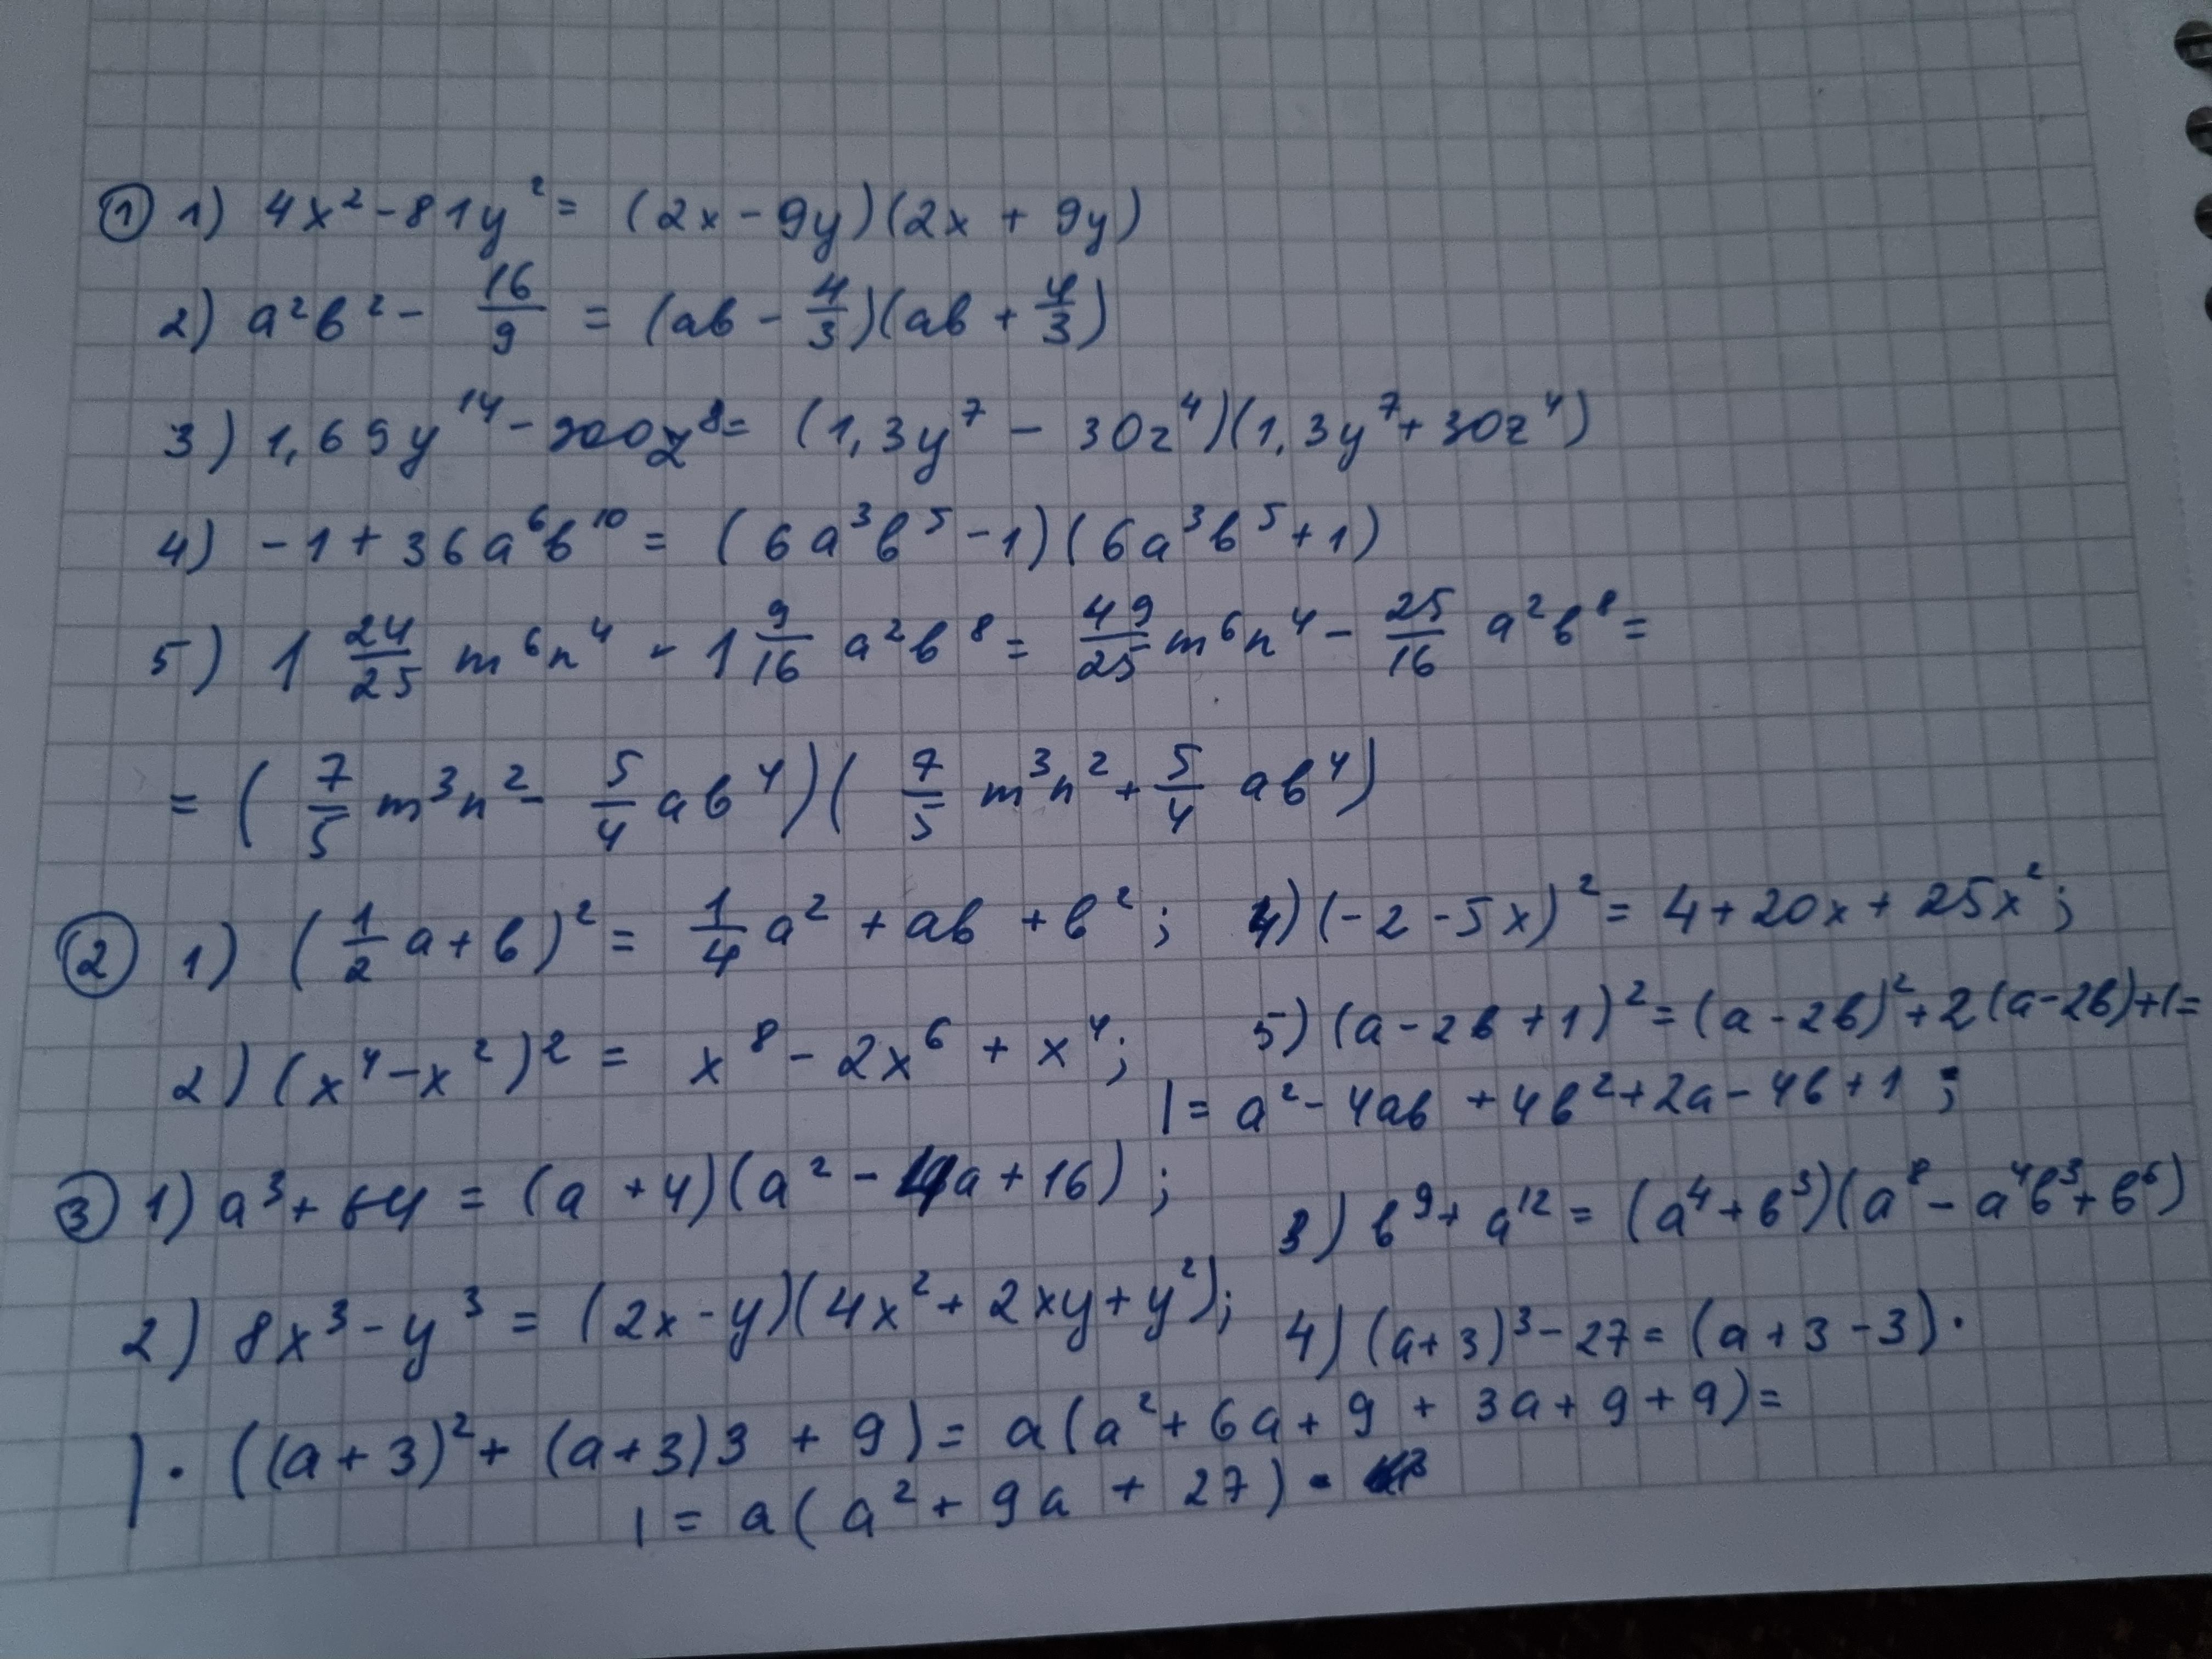 ① 1) 4x² - 81y² = (2x - 9y)(2x + 9y)
2) a²b² - 16/9 = (ab - 4/3)(ab + 4/3)
3) 1,69y¹⁴ - 900z⁸ = (1,3y⁷ - 30z⁴)(1,3y⁷ + 30z⁴)
4) -1 + 36a⁶b¹⁰ = (6a³b⁵ - 1)(6a³b⁵ + 1)
5) 1 24/25 m⁶n⁴ - 1 9/16 a²b⁸ = 49/25 m⁶n⁴ - 25/16 a²b⁸ =
= (7/5 m³n² - 5/4 ab⁴)(7/5 m³n² + 5/4 ab⁴)
② 1) (1/2 a + b)² = 1/4 a² + ab + b²;
2) (x⁴ - x²)² = x⁸ - 2x⁶ + x⁴;
4) (-2 - 5x)² = 4 + 20x + 25x²;
5) (a - 2b + 1)² = (a - 2b)² + 2(a - 2b) + 1 =
= a² - 4ab + 4b² + 2a - 4b + 1;
③ 1) a³ + 64 = (a + 4)(a² - 4a + 16);
2) 8x³ - y³ = (2x - y)(4x² + 2xy + y²);
3) b⁹ + a¹² = (a⁴ + b³)(a⁸ - a⁴b³ + b⁶)
4) (a + 3)³ - 27 = (a + 3 - 3) ·
· ((a + 3)² + (a + 3)3 + 9) = a(a² + 6a + 9 + 3a + 9 + 9) =
= a(a² + 9a + 27)